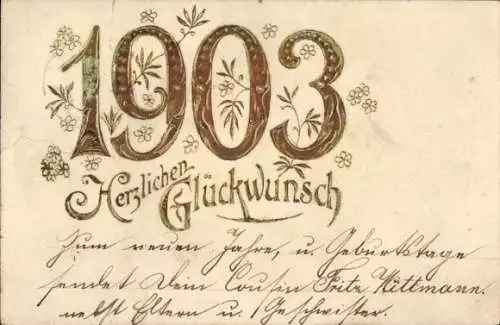 1903
Herzlichen
Glückwunsch
Zum neuen Jahre, u. Geburtstage
sendet Dein Cousin Fritz Hüttmann.
nebst Eltern u. Geschwister.